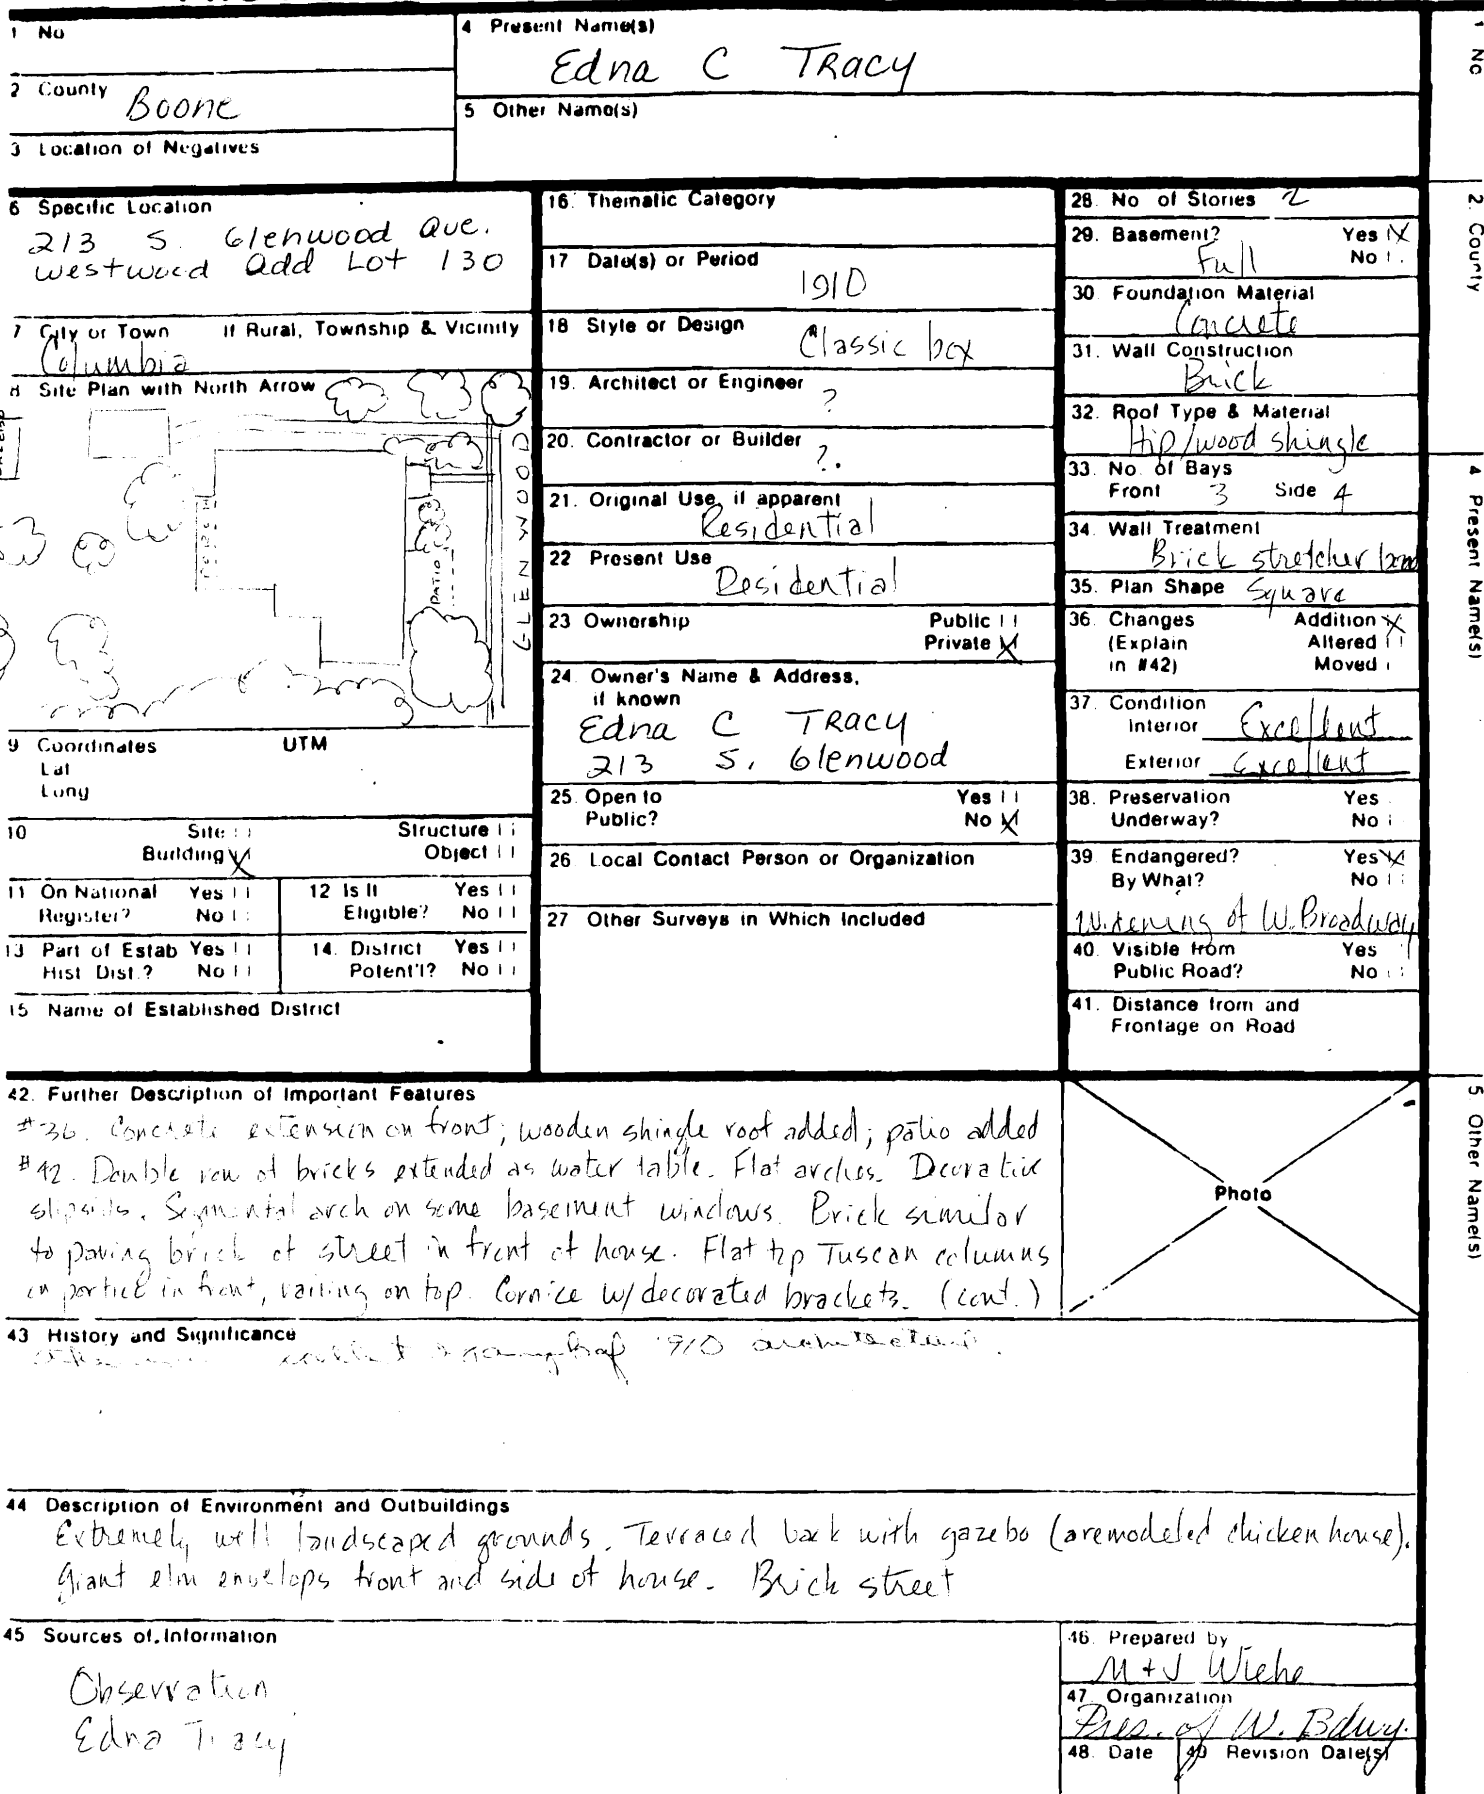 1 No
4 Present Name(s)
Edna C Tracy
2 County
Boone
5 Other Name(s)
3 Location of Negatives
6 Specific Location
213 S. Glenwood Ave.
Westwood Add Lot 130
7 City or Town If Rural, Township & Vicinity
Columbia
8 Site Plan with North Arrow
GLENWOOD
PATIO
9 Coordinates UTM
Lat
Long
10 Site Structure
Building X Object
11 On National Register? Yes No
12 Is It Eligible? Yes No
13 Part of Estab Hist Dist.? Yes No
14. District Potent'l? Yes No
15 Name of Established District
16. Thematic Category
17 Date(s) or Period
1910
18 Style or Design
Classic box
19. Architect or Engineer
?
20. Contractor or Builder
?.
21. Original Use, if apparent
Residential
22 Present Use
Residential
23 Ownership Public
Private X
24. Owner's Name & Address,
if known
Edna C Tracy
213 S. Glenwood
25. Open to Yes
Public? No X
26 Local Contact Person or Organization
27 Other Surveys in Which Included
28. No of Stories 2
29. Basement? Yes X
Full No
30. Foundation Material
Concrete
31. Wall Construction
Brick
32. Roof Type & Material
Hip/wood shingle
33. No. of Bays
Front 3 Side 4
34. Wall Treatment
Brick stretcher bond
35. Plan Shape Square
36. Changes Addition X
(Explain Altered
in #42) Moved
37. Condition
Interior Excellent
Exterior Excellent
38. Preservation Yes
Underway? No
39. Endangered? Yes X
By What? No
Widening of W. Broadway
40. Visible from Yes
Public Road? No
41. Distance from and
Frontage on Road
42. Further Description of Important Features
#36. Concrete extension on front; wooden shingle roof added; patio added
#42. Double row of bricks extended as water table. Flat arches. Decorative
slipsills. Segmental arch on some basement windows. Brick similar
to paving brick of street in front of house. Flat top Tuscan columns
on portico in front, railing on top. Cornice w/ decorated brackets. (cont.)
Photo
43 History and Significance
1910 architecture.
44 Description of Environment and Outbuildings
Extremely well landscaped grounds. Terraced back with gazebo (a remodeled chicken house).
Giant elm envelops front and side of house. Brick street
45 Sources of Information
Observation
Edna Tracy
46. Prepared by
M + J Wiehe
47. Organization
Pres. of W. Bdwy.
48. Date 49 Revision Date(s)
1 No
2. County
4 Present Name(s)
5 Other Name(s)